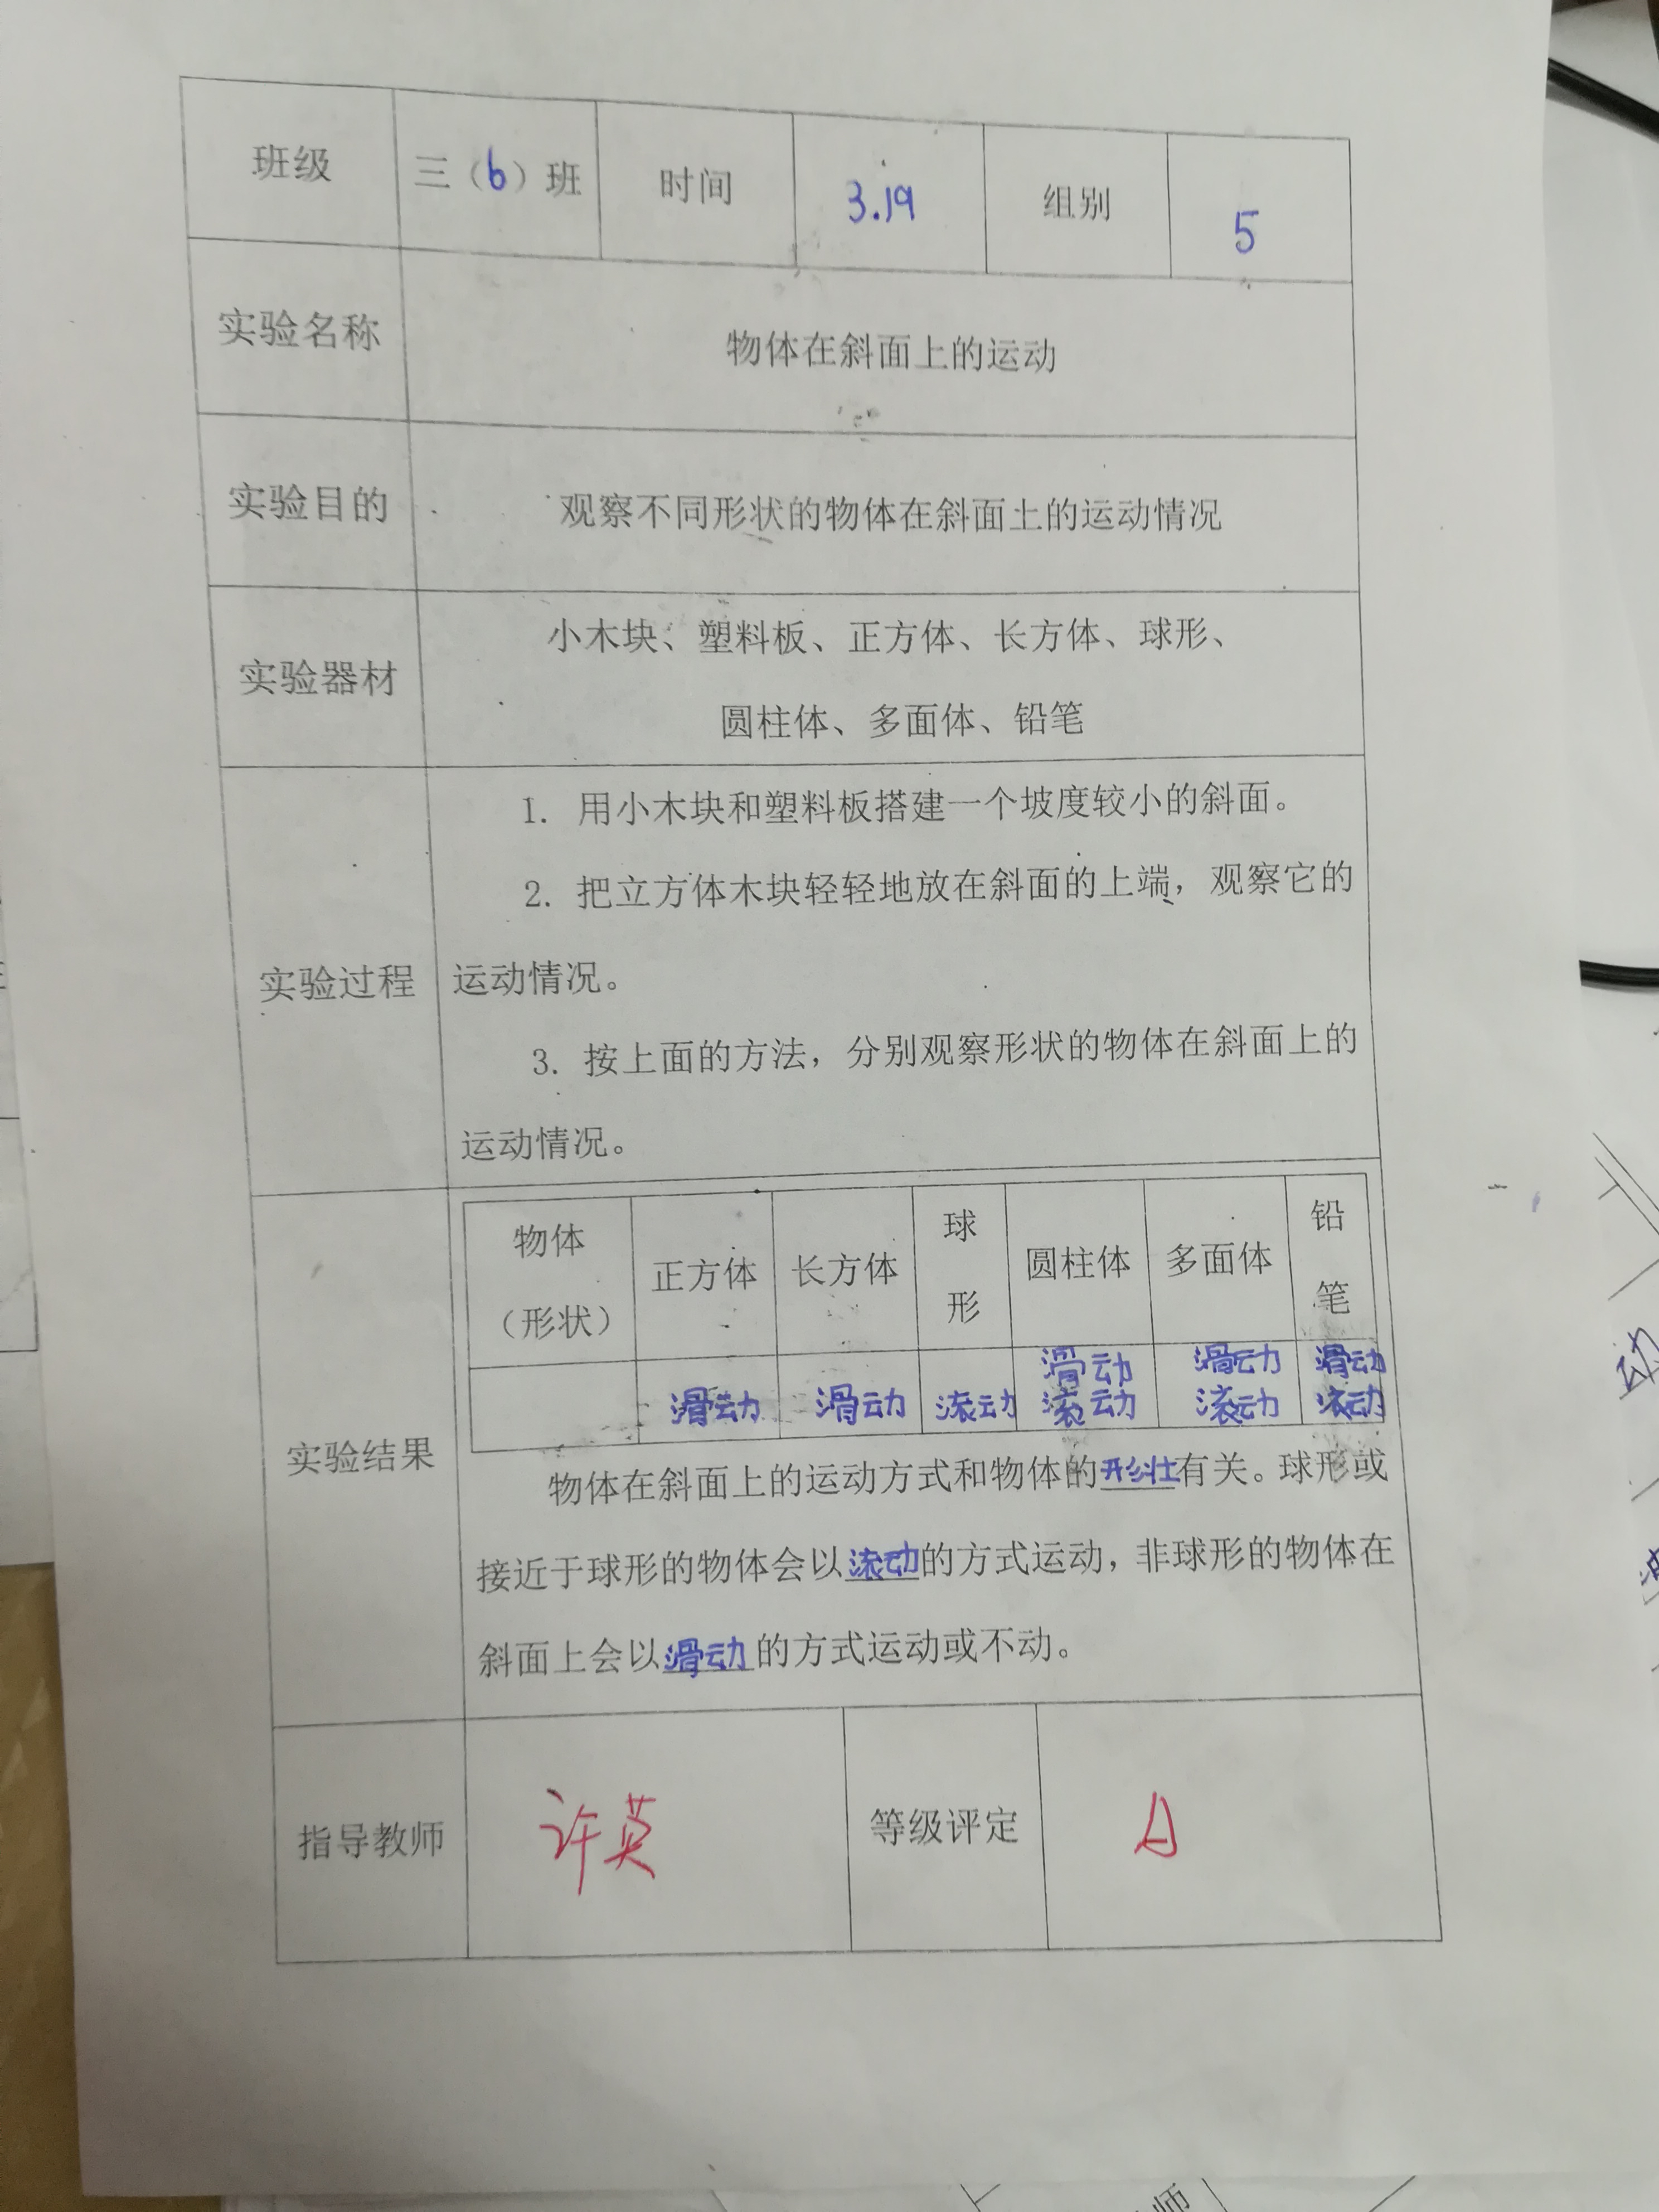 班级 三（6）班 时间 3.19 组别 5
实验名称 物体在斜面上的运动
实验目的 观察不同形状的物体在斜面上的运动情况
小木块、塑料板、正方体、长方体、球形、
实验器材
圆柱体、多面体、铅笔
1. 用小木块和塑料板搭建一个坡度较小的斜面。
2. 把立方体木块轻轻地放在斜面的上端，观察它的
实验过程 运动情况。
3. 按上面的方法，分别观察形状的物体在斜面上的
运动情况。
实验结果
物体（形状） 正方体 长方体 球形 圆柱体 多面体 铅笔
滑动 滑动 滚动 滑动滚动 滑动滚动 滑动滚动
物体在斜面上的运动方式和物体的形状有关。球形或
接近于球形的物体会以滚动的方式运动，非球形的物体在
斜面上会以滑动的方式运动或不动。
指导教师 许英 等级评定 A
动
师